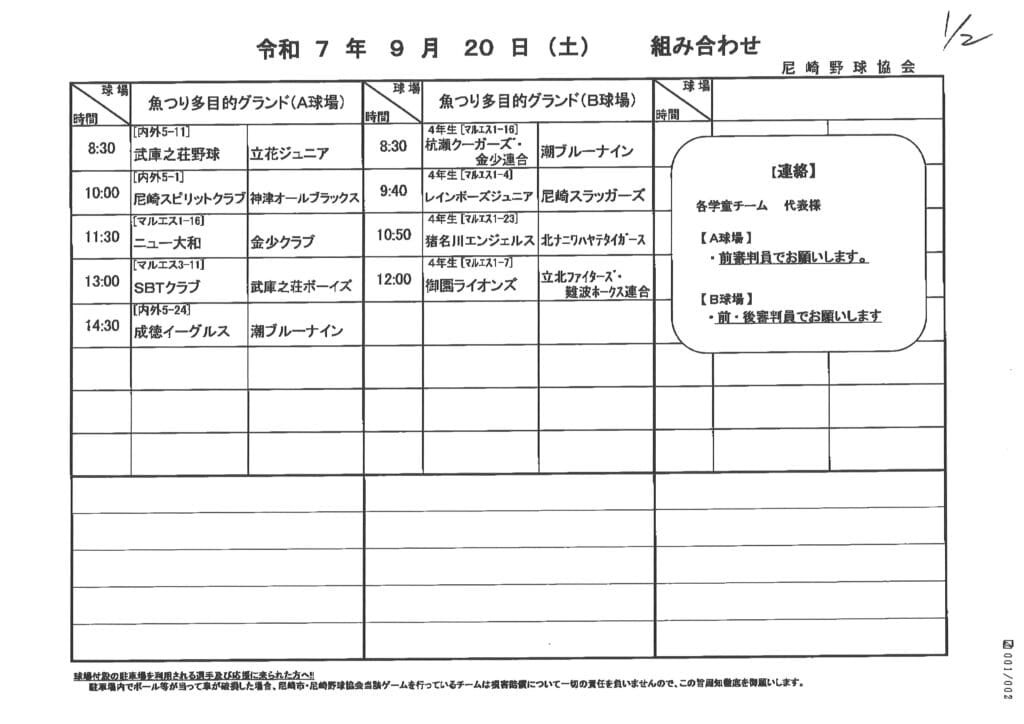 1/2
令和 7 年 9 月 20 日 (土) 組み合わせ
尼崎野球協会
球場
時間
魚つり多目的グランド(A球場)
球場
時間
魚つり多目的グランド(B球場)
球場
時間
8:30
[内外5-11]
武庫之荘野球
立花ジュニア
8:30
4年生 [マルエス1-16]
杭瀬クーガーズ・
金少連合
潮ブルーナイン
10:00
[内外5-1]
尼崎スピリットクラブ
神津オールブラックス
9:40
4年生 [マルエス1-4]
レインボーズジュニア
尼崎スラッガーズ
11:30
[マルエス1-16]
ニュー大和
金少クラブ
10:50
4年生 [マルエス1-23]
猪名川エンジェルス
北ナニワハヤテタイガース
13:00
[マルエス3-11]
SBTクラブ
武庫之荘ボーイズ
12:00
4年生 [マルエス1-7]
御園ライオンズ
立北ファイターズ・
難波ホークス連合
14:30
[内外5-24]
成徳イーグルス
潮ブルーナイン
【連絡】
各学童チーム 代表様
【A球場】
・前審判員でお願いします。
【B球場】
・前・後審判員でお願いします
球場付設の駐車場を利用される選手及び応援に来られた方へ!!
駐車場内でボール等が当って車が破損した場合、尼崎市・尼崎野球協会当該ゲームを行っているチームは損害賠償について一切の責任を負いませんので、この旨周知徹底を御願いします。
0011/002